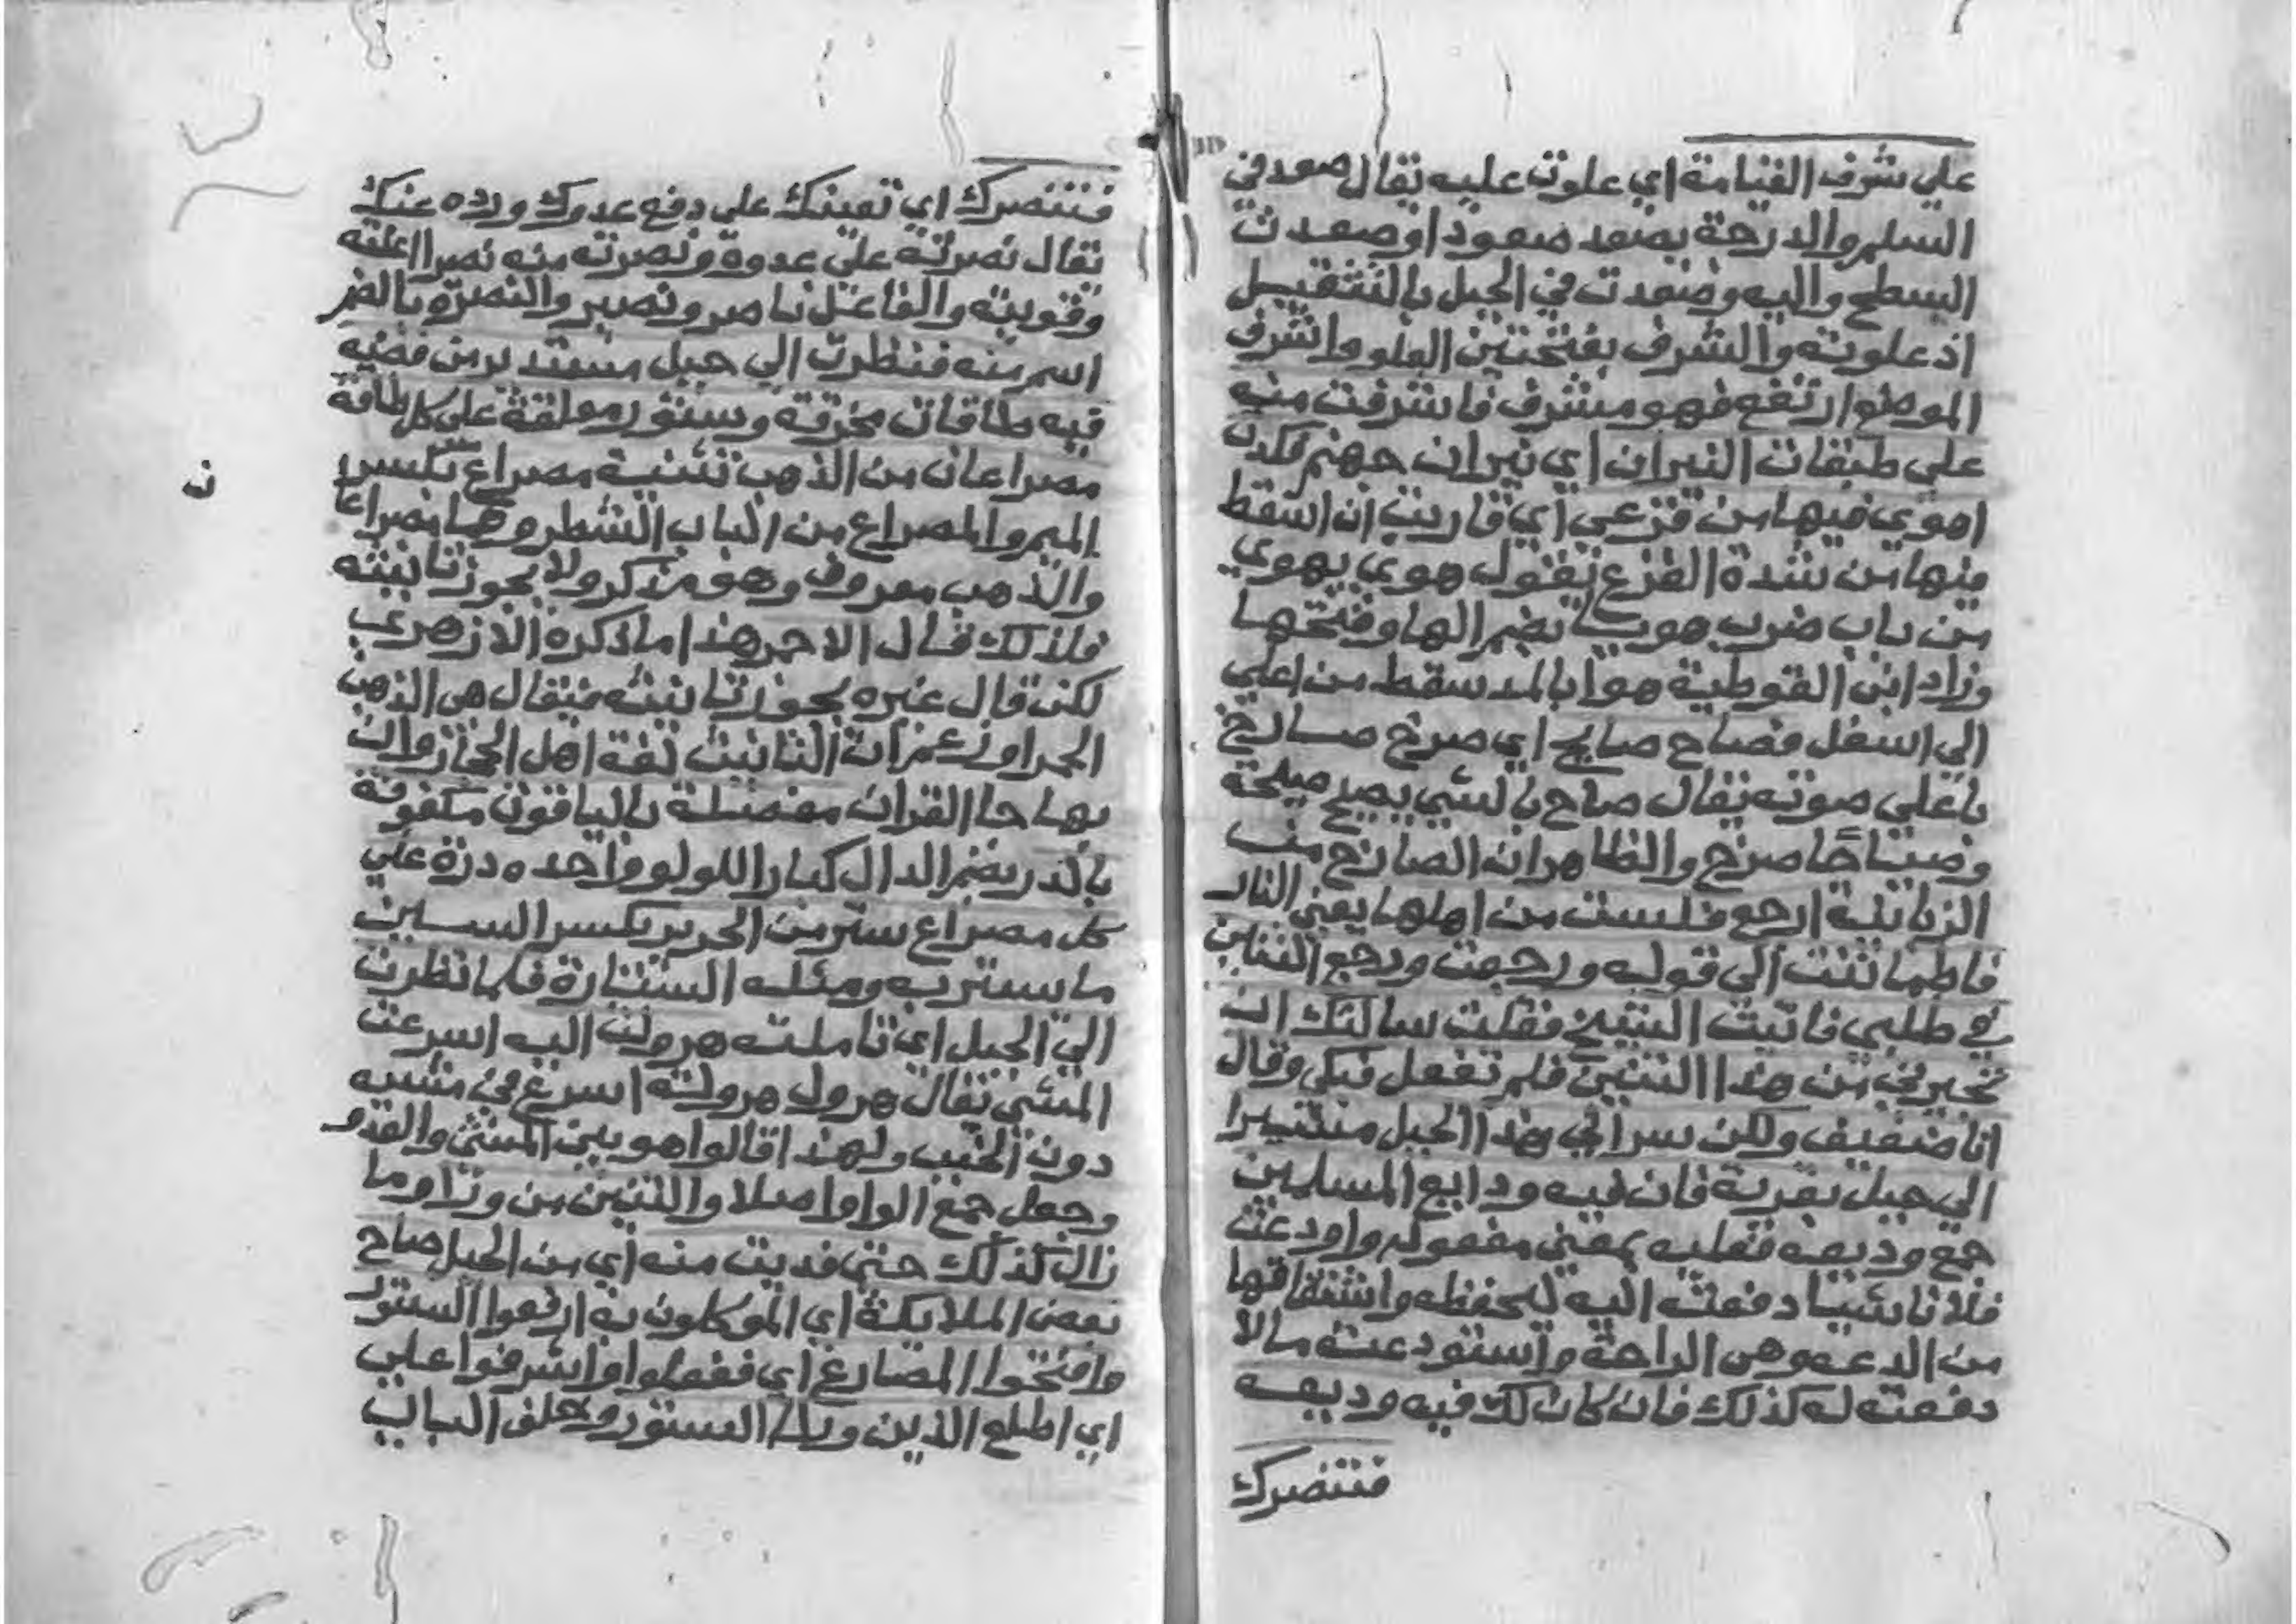 علي شرف القيامة اي علوت عليه يقال صعد في
السلم والدرجة يصعد صعودا وصعدت
السطح واليه وصعدت في الجبل بالتثقيل
اذ علوته والشرف بفتحتين العلو واشرف
الموضع ارتفع فهو مشرف فاشرفت منه
علي طبقات النيران اي نيران جهنم فكدت
اهوي فيها من فزعي اي قاربت ان اسقط
فيها من شدة الفزع يقول هوي يهوي
من باب ضرب هويا بضم الها وفتحها
وزاد ابن القوطية هواء بالمد سقط من اعلي
الي اسفل فصاح صايح اي صرخ صارخ
باعلي صوته يقال صاح بالشي يصيح صيحة
وصياحا صرخ والظاهر ان الصارخ من
الزبانية ارجع فلست من اهلها يعني النار
فاطماننت الي قوله ورجعت ورجع التنين
في طلبي فاتيت الشيخ فقلت سالتك ان
تجيرني من هذا التنين فلم تفعل فبكي وقال
انا ضعيف ولكن سر الي هذا الجبل مشيرا
الي جبل بقربه فان فيه ودايع المسلمين
جمع وديعة فعليه بمعني مفعوله واودعت
فلانا شيا دفعته اليه ليحفظه واشتقاقها
من الدعه وهي الراحة واستودعته مالا
دفعته له كذلك فان كان لك فيه وديعه
فتنصرك
فتنصرك اي تعينك علي دفع عدوك ورده عنك
يقال نصرته علي عدوه ونصرته منه نصرا اعنته
وقويته والفاعل ناصر ونصير والنصرة بالضم
اسم منه فنظرت الي جبل مستدير من فضه
فيه طاقات مخرقة وستور معلقة علي كل طاقة
مصراعان من الذهب تثنية مصراع بكسر
الميم والمصراع من الباب الشطر وهما مصراعا
ن
والذهب معروف وهو مذكر ولا يجوز تانيثه
فلذلك قال الاحمر هذا ما ذكره الازهري
لكن قال غيره يجوز تانيثه فيقال هي الذهب
الحمرا وزعم ان التانيث لغة اهل الحجاز وان
بها جا القران مفصلة بالياقوت مكفوفة
بالدر بضم الدال كبار اللولو واحده درة علي
كل مصراع ستر من الحرير بكسر السين
ما يستر به ومثله الستارة فلما نظرت
الي الجبل اي تاملته هرولت اليه اسرعت
المشي يقال هرول هرولة اسرع في مشيه
دون الخبب ولهذا قالوا هو بين المشي والعدو
وجعل جمع الواو اصلا والتنين من وراو ما
زال كذلك حتي قربت منه اي من الجبل صاح
بعض الملايكة اي الموكلون به ارفعوا الستور
وافتحوا المصاريع اي ففعلوا واشرفوا علي
اي اطلع الذين ورا الستور وخلف الباب